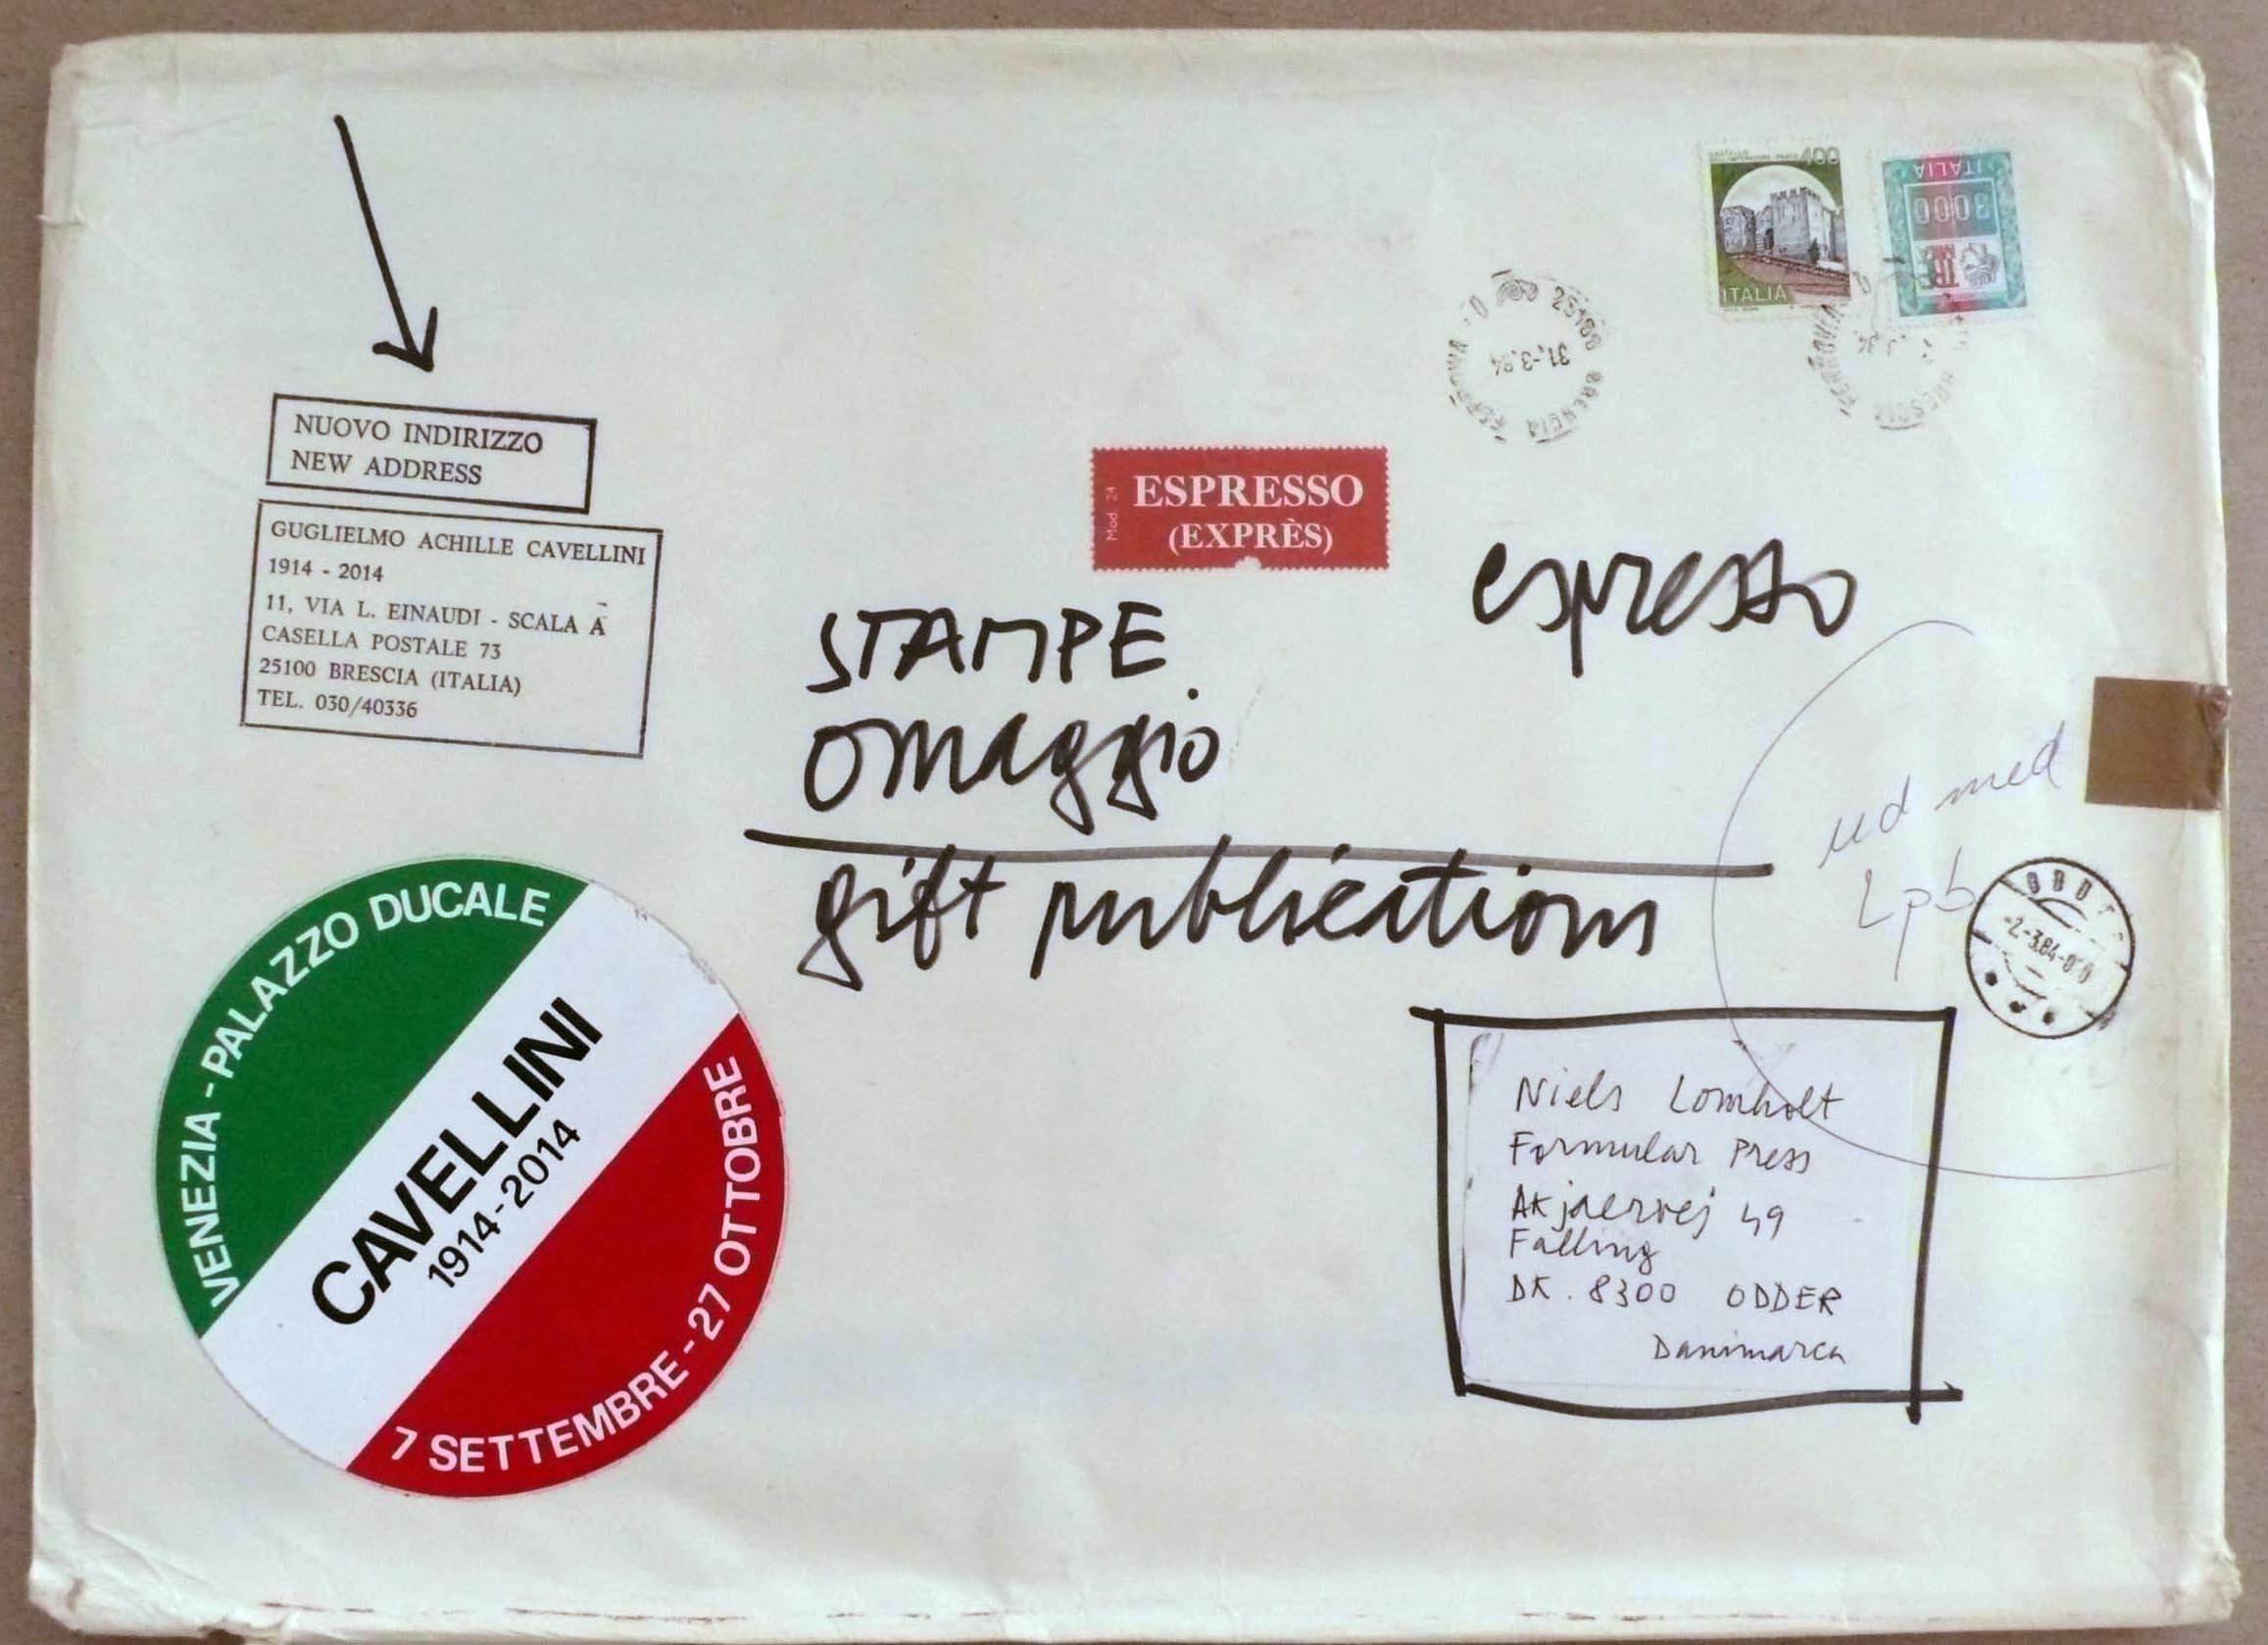 CASTELLO
400
ITALIA
ITALIA
3000
TRE
25100 BRESCIA
FERROVIA
31.-3.84
BRESCIA
FERROVIA
NUOVO INDIRIZZO
NEW ADDRESS
GUGLIELMO ACHILLE CAVELLINI
1914 - 2014
11, VIA L. EINAUDI - SCALA A
CASELLA POSTALE 73
25100 BRESCIA (ITALIA)
TEL. 030/40336
Mod. 24
ESPRESSO
(EXPRÈS)
espresso
STAMPE.
omaggio
gift publications
ud med
Lpb
-2.-3.84
VENEZIA - PALAZZO DUCALE
CAVELLINI
1914-2014
7 SETTEMBRE - 27 OTTOBRE
Niels Lomholt
Formular Press
Akjaervej 49
Falling
DK. 8300 ODDER
Danimarca